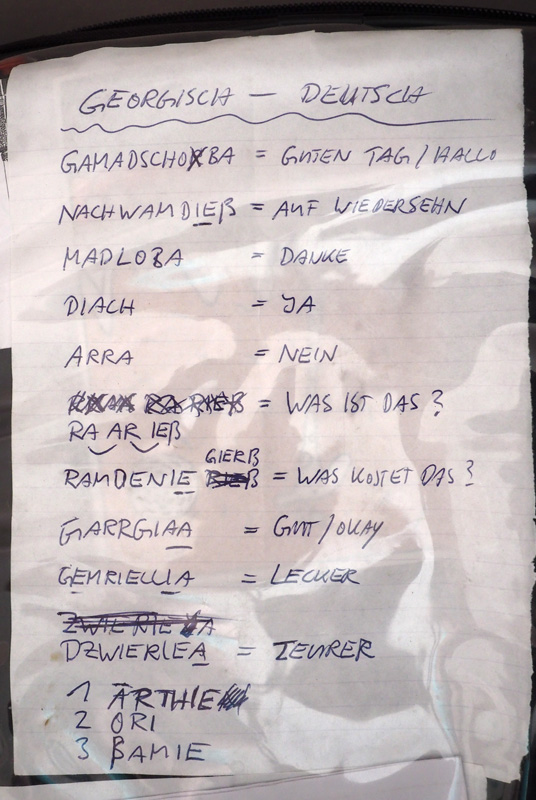 GEORGISCH — DEUTSCH
GAMADSCHOBA = GUTEN TAG / HALLO
NACHWAMDIEß = AUF WIEDERSEHN
MADLOBA = DANKE
DIACH = JA
ARRA = NEIN
= WAS IST DAS ?
RA AR IEß
GIERß
RAMDENIE = WAS KOSTET DAS ?
GARRGIAA = GUT / OKAY
GEMRIELLIA = LECKER
ZWIE RIE A
DZWIERIEA = TEURER
1 ÄRTHIE
2 ORI
3 ßAMIE